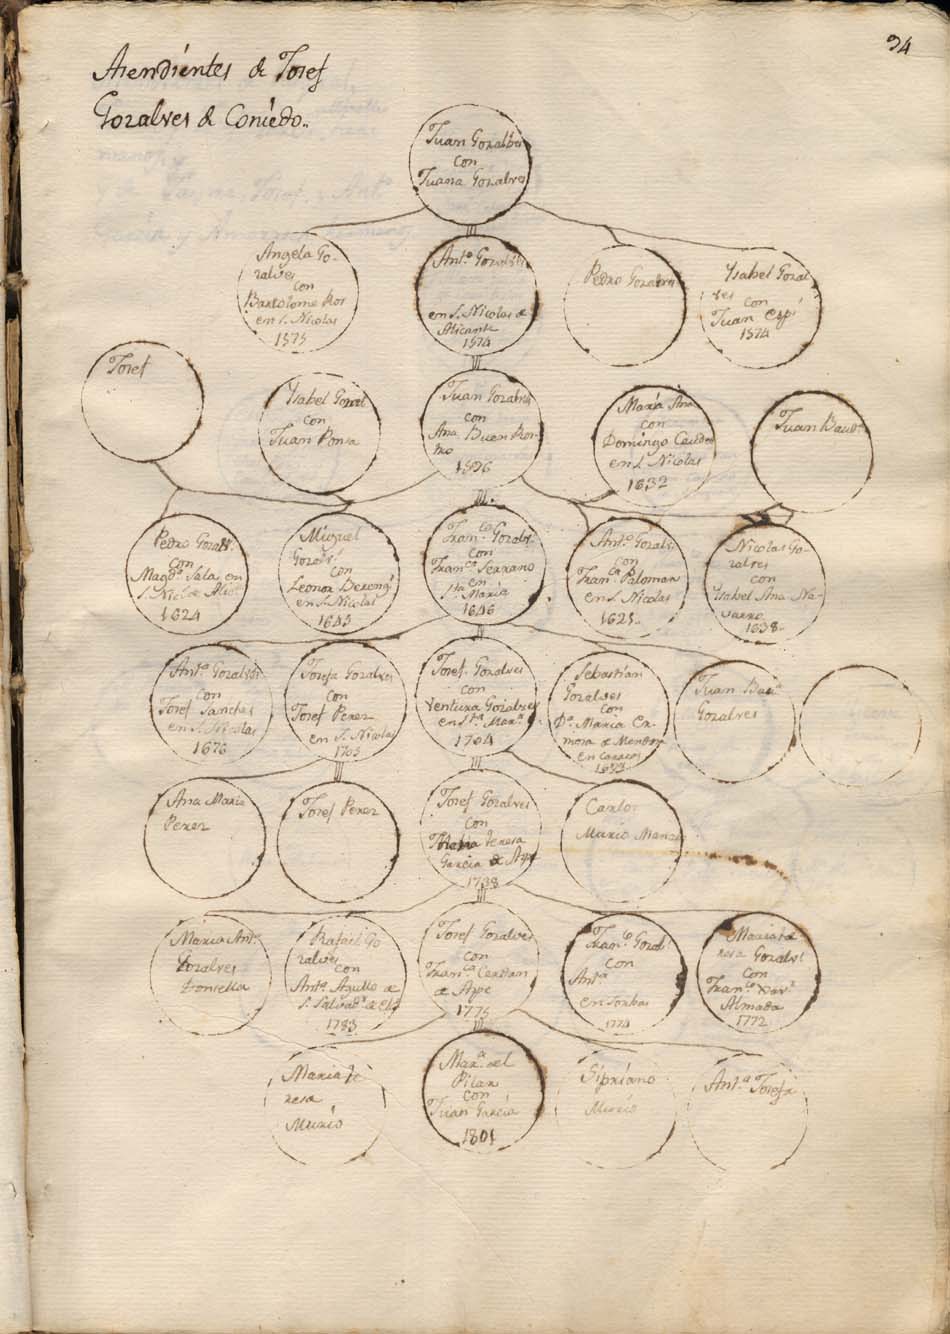 94
Asendientes de Josef
Gozalves de Coniedo..
Juan Gozalbes
con
Juana Gozalves
Angela Go-
zalves
con
Bartolome Ros
en S. Nicolas
1575
Ant.º Gozalves
en S. Nicolas de
Alicante
1574
Pedro Gozalves
Ysabel Gozal
ves
con
Juan Espi
1574
Josef
Ysabel Gozal
con
Juan Ponsa
Juan Gozalves
con
Ana Buen Ros-
tro
1596
Maria Ana
con
Domingo
en S. Nicolas
1632
Juan Baut.ª
Pedro Gozalv.
con
Magd.ª Sala en
S. Nic.s de Alic.te
1624
Miguel
Gozalv.s
con
Leonor Bereng.r
en S. Nicolas
1645
Fran.co Gozalv.s
con
Fran.ca Serrano
en
S.ta Maria
1646
Ant.º Gozalv.s
con
Fran.ca Palomar
en S. Nicolas
1621..
Nicolas Go-
zalves
con
Ysabel Ana Na-
varro
1638..
Ant.ª Gozalves
con
Josef Sanches
en S. Nicolas
1676
Josefa Gozalves
con
Josef Perez
en S. Nicolas
1703
Josef Gozalves
con
Ventura Gozalves
en S.ta Mar.ª
1704
Sebastian
Gozalves
con
D.ª Maria Ca-
mosa de Mendoz
en Caracas
1693
Juan Bau.ta
Gozalves
Ana Maria
Perez
Josef Perez
Josef Gozalves
con
Maria Teresa
Garcia de Aspe
1738
Carlos
Murio
Maria Ant.ª
Gozalves
Donsella
Rafael Go
zalves
con
Ant.ª Agullo de
S. Salvad.r de El.e
1783
Josef Gozalves
con
Fran.ca Cerdan
de Aspe
1775
Fran.co Gozal.s
con
Ant.ª
en Sorbas
1774
Maria te
resa Gozalv.s
con
Fran.co Xav.r
Almada
1772
Maria te
resa
Murio
Mar.ª del
Pilar
con
Juan Garcia
1801
Sipriano
Murio
Ant.ª Josefa